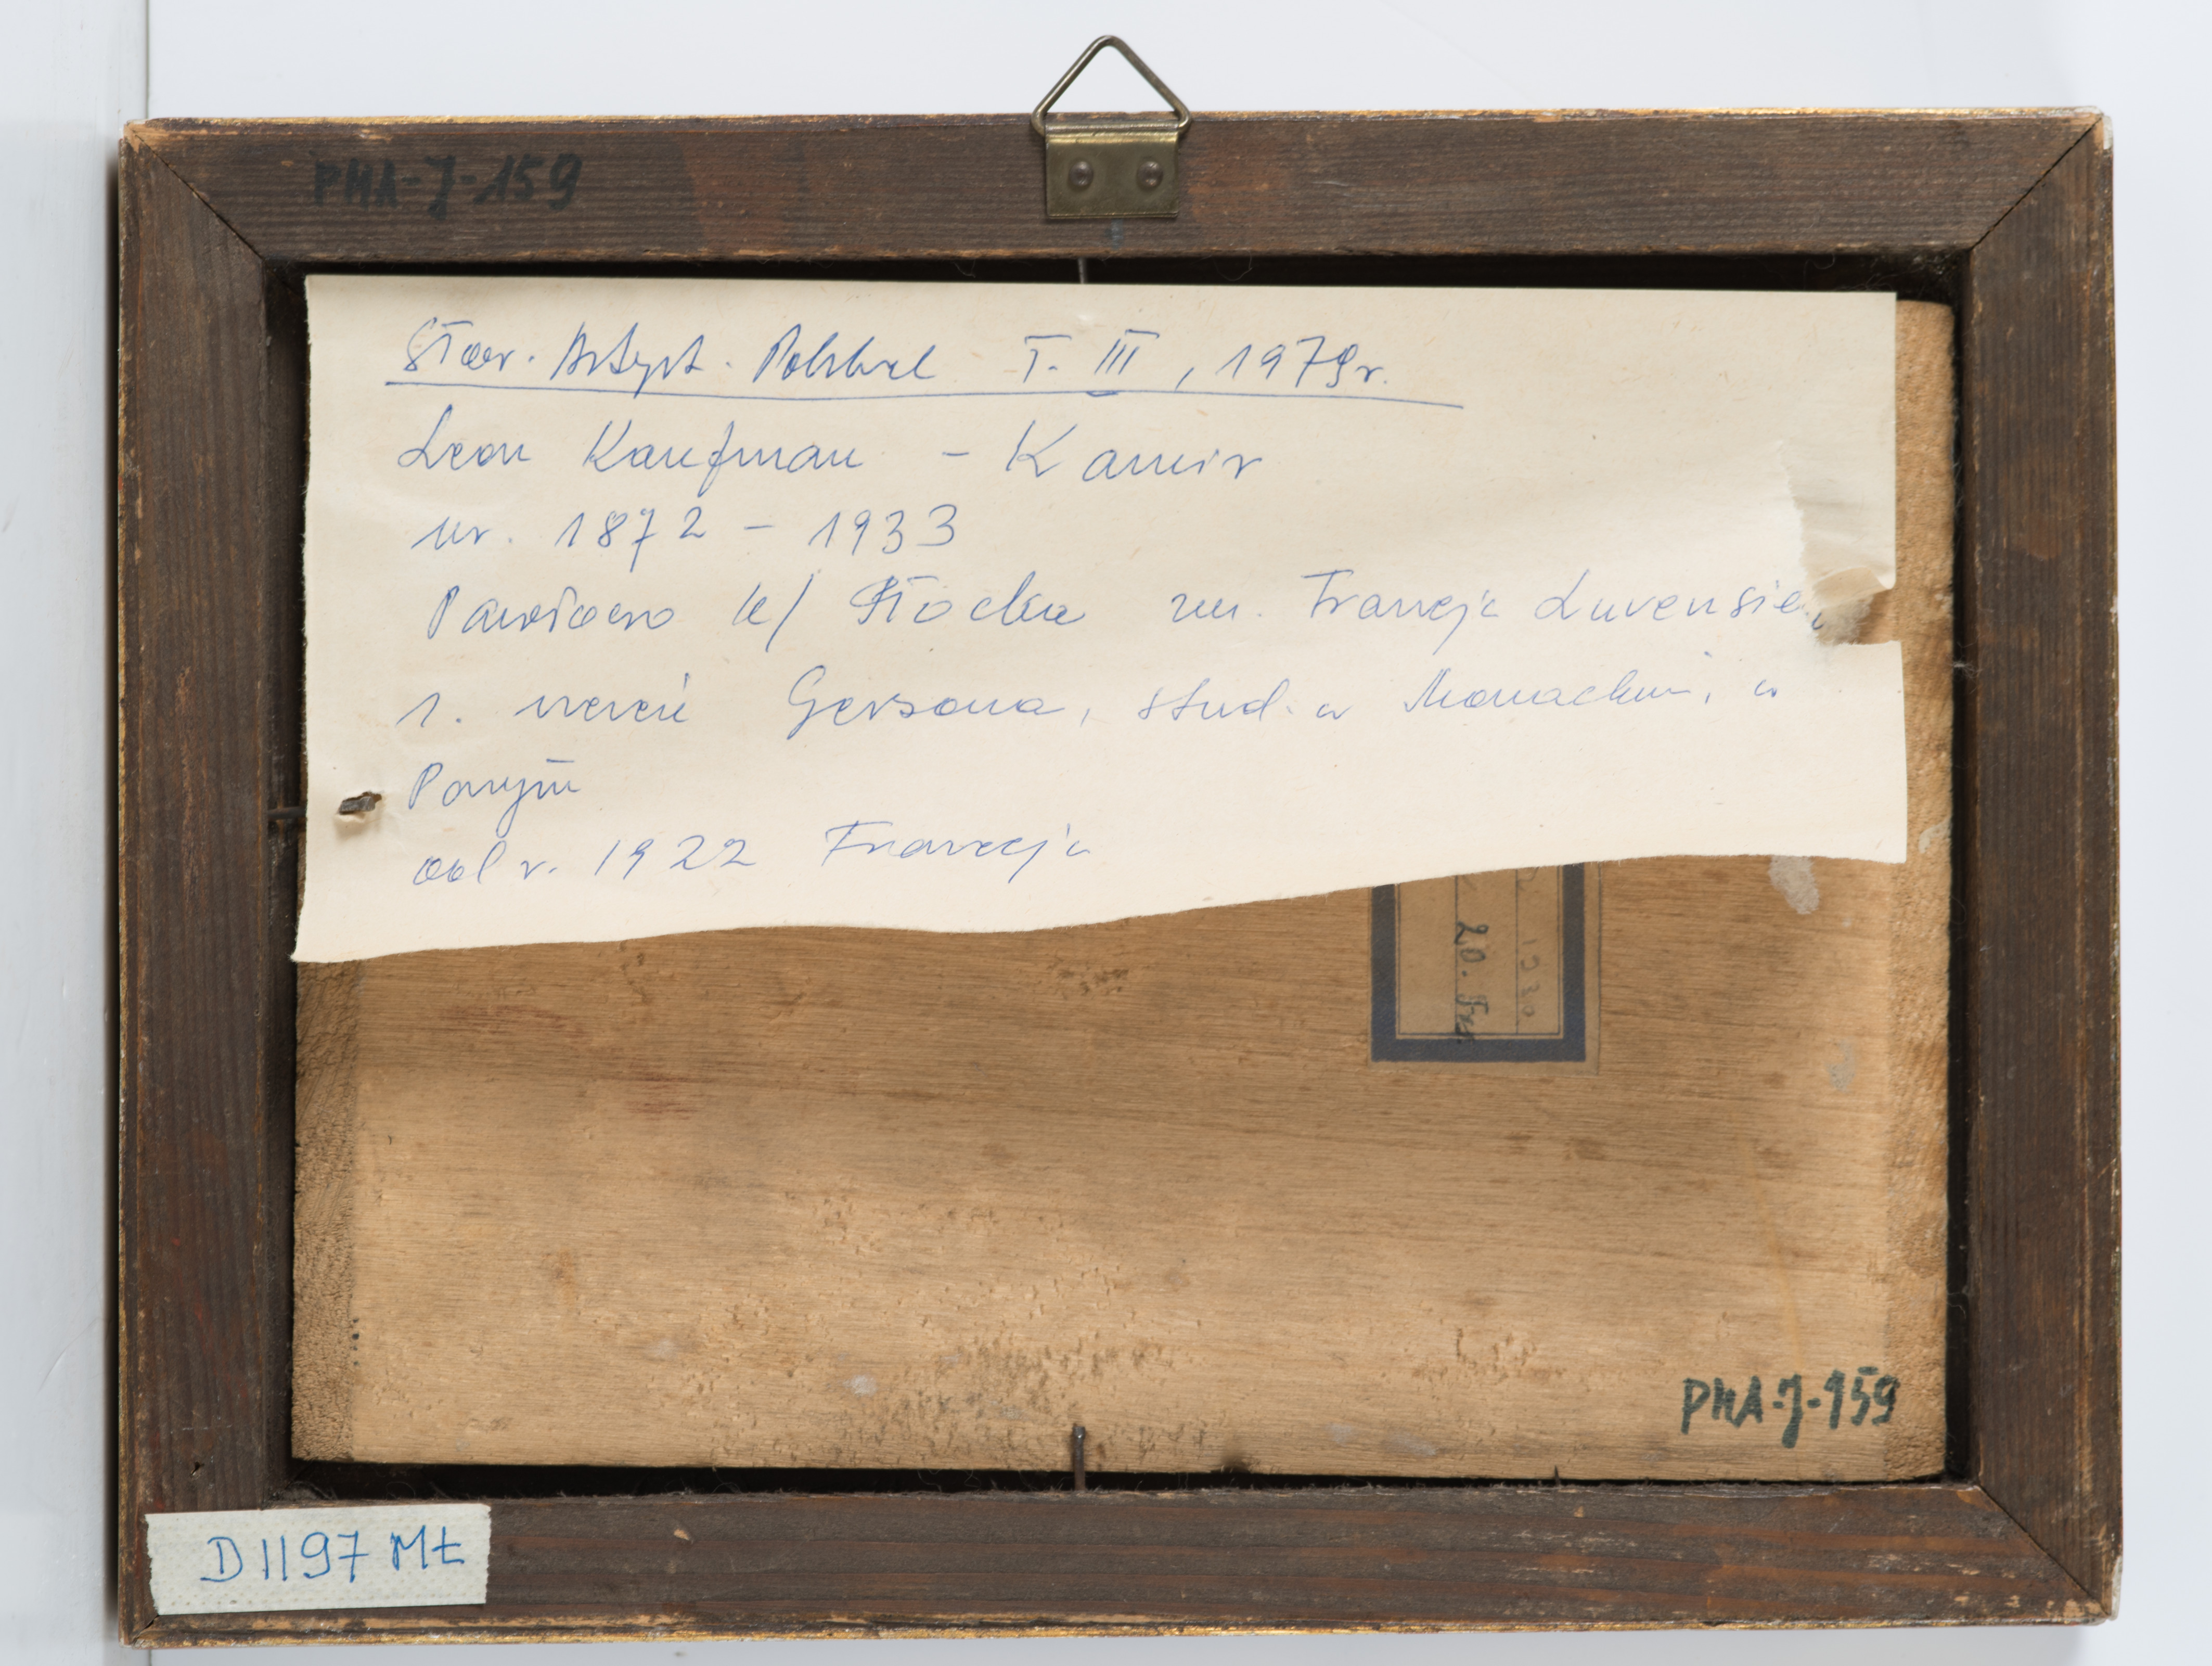 PMA-J-159
Słow. Artyst. Polskich T. III, 1979r.
Leon Kaufman - Kamir
ur. 1872 - 1933
Pawłowo k/ Płocka zm. Francja Luvensie
1. uczeń Gersona, stud. w Monachium, w
Paryżu
od r. 1922 Francja
1930
20. Fr
PMA-J-159
D 1197 MŁ